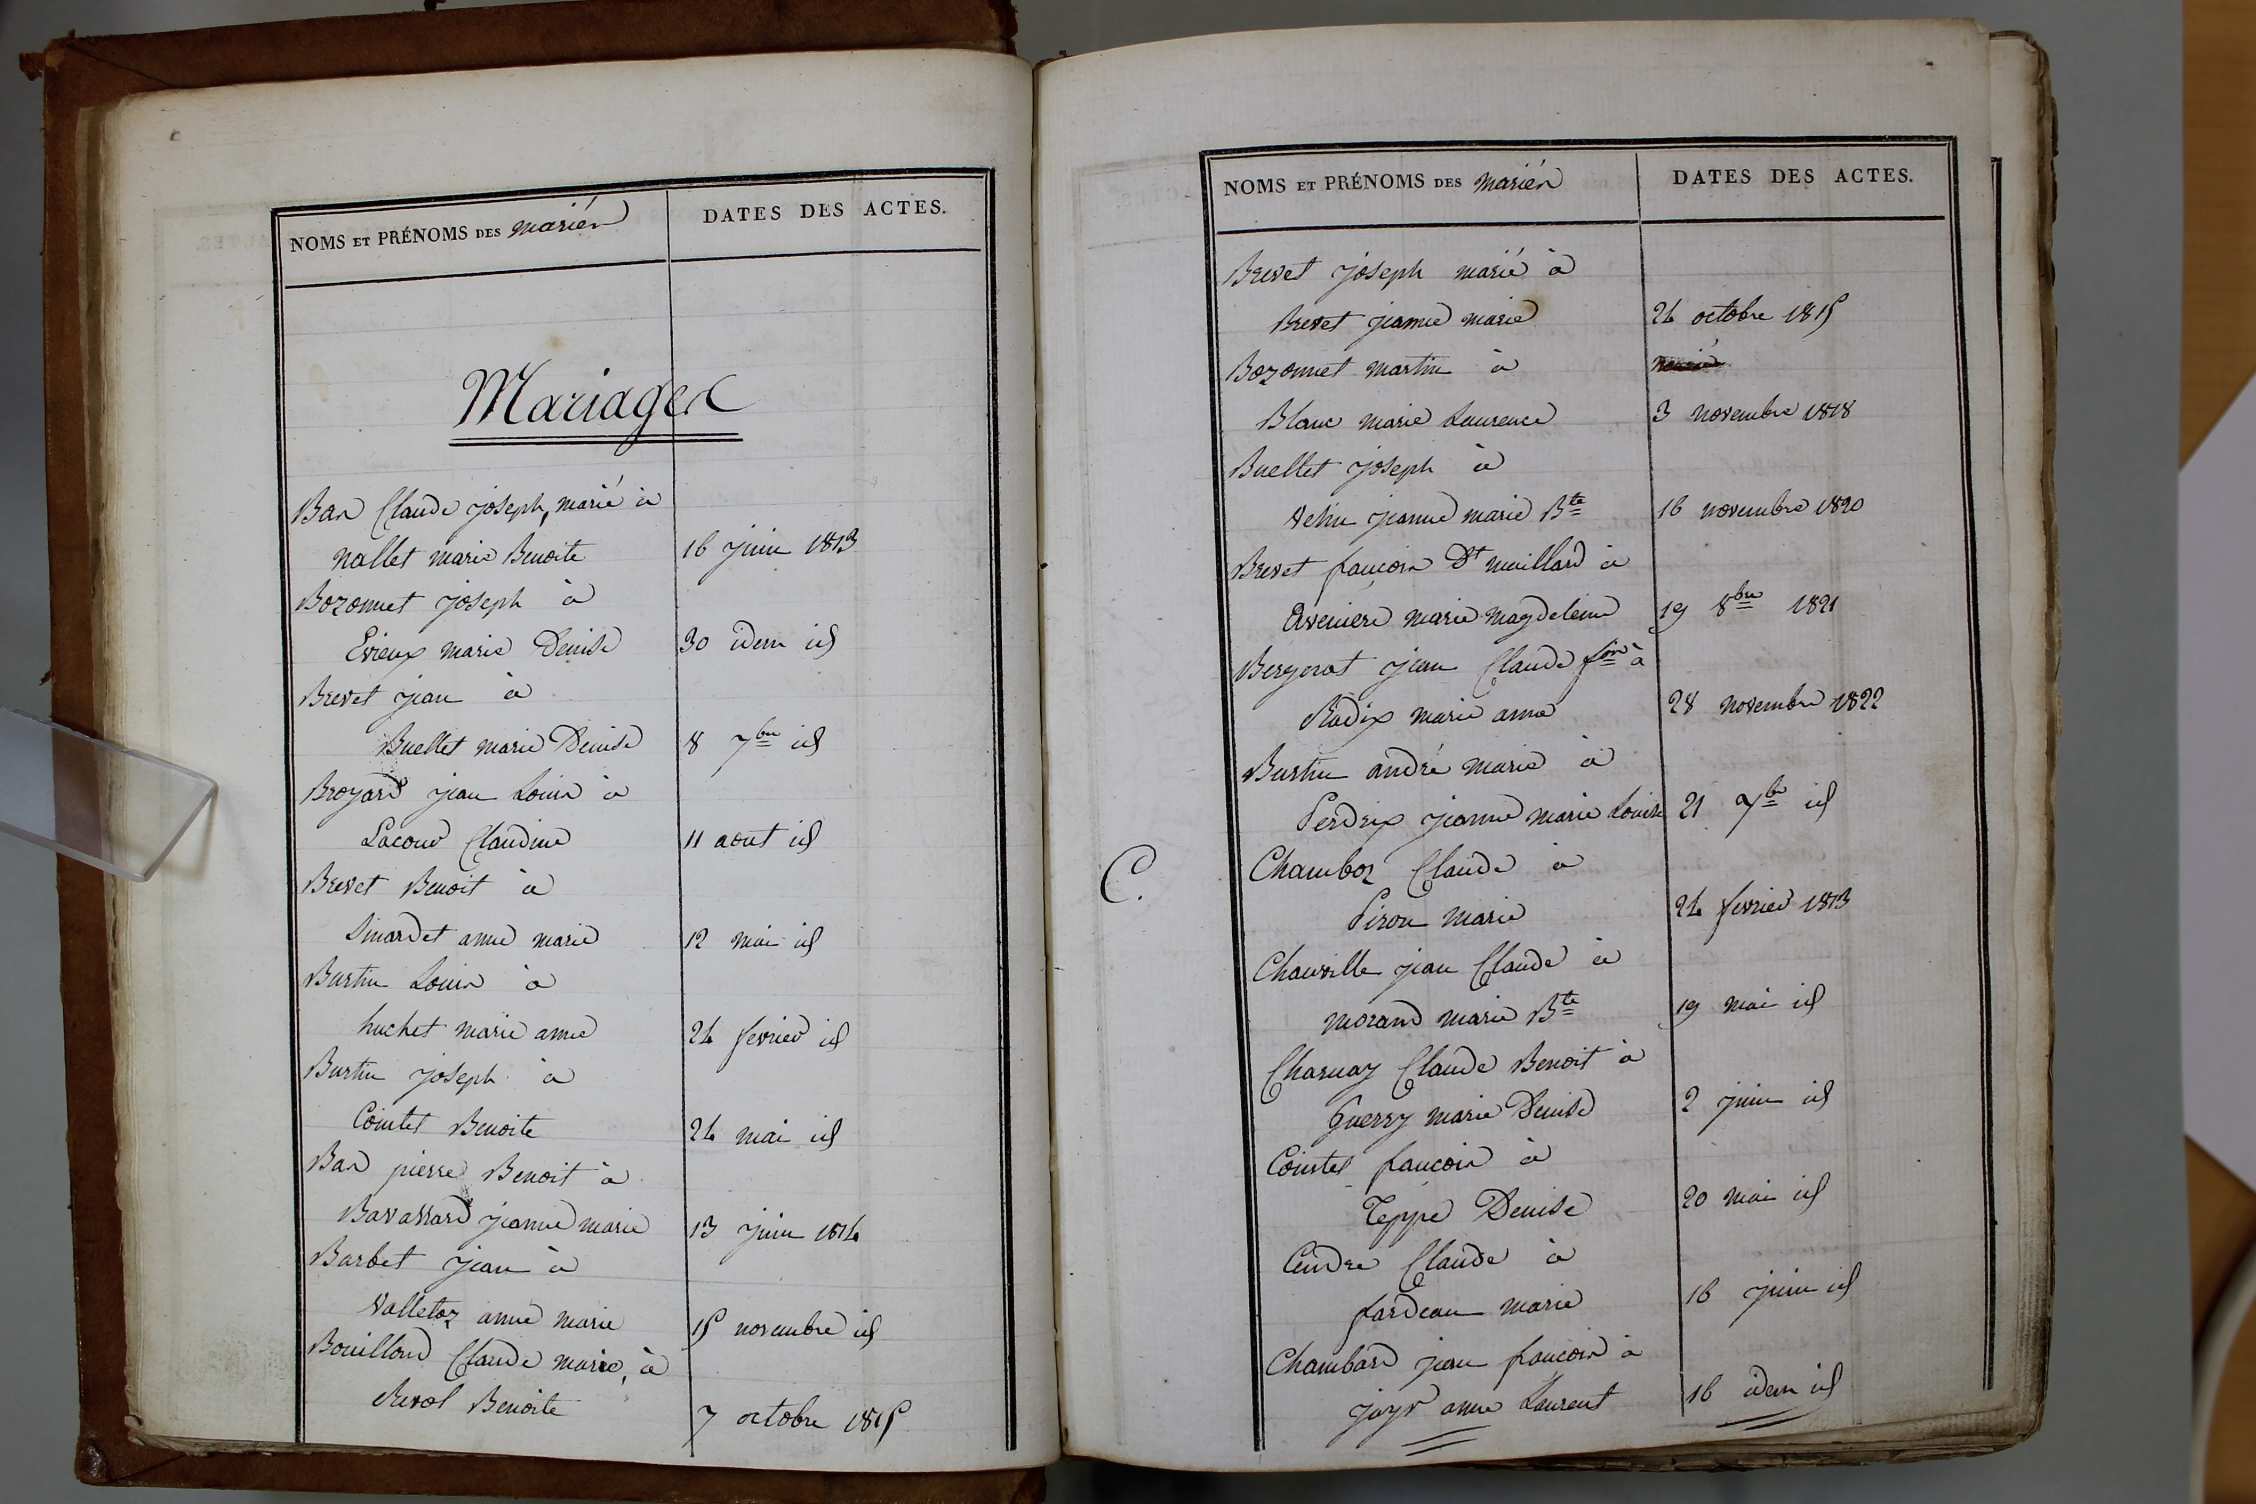 NOMS ET PRÉNOMS DES mariés
DATES DES ACTES.
Mariages
Bas Claude joseph, marié à
nallet marie Benoite 16 juin 1813
Bozonnet joseph à
Evieux marie Denise 30 idem id
Brevet jean à
Buellet marie Denise 8 7bre id
Broyard jean Louis à
Lacour Claudine 11 aout id
Brevet Benoit à
Sinardet anne marie 12 mai id
Burtin Louis à
huchet marie anne 24 fevrier id
Burtin joseph à
Cointet Benoite 24 mai id
Bas pierre Benoit à
Bavassard jeanne marie 13 juin 1814
Barbet jean à
Valletoz anne marie 15 novembre id
Bouilloud Claude marie, à
Revol Benoite 7 octobre 1815
NOMS ET PRÉNOMS DES mariés
DATES DES ACTES.
Brevet joseph marié à
Brevet jeanne marie 24 octobre 1815
Bozonnet martin à
Blanc marie Laurence 3 novembre 1818
Buellet joseph à
Velin jeanne marie Bte 16 novembre 1820
Brevet françois dt maillard à
Aveniere marie magdeleine 19 8bre 1821
Bergerat jean Claude fois à
Radix marie anne 28 novembre 1822
Burtin andré marie à
Perdrix jeanne marie Louise 21 7bre id
C.
Chamboz Claude à
Piron marie 24 fevrier 1813
Chauville jean Claude à
morand marie Bte 19 mai id
Charnay Claude Benoit à
Guerry marie Denise 2 juin id
Cointet françois à
Teppe Denise 20 mai id
Cendre Claude à
fardeau marie 16 juin id
Chambard jean françois à
jayr anne Laurent 16 idem id